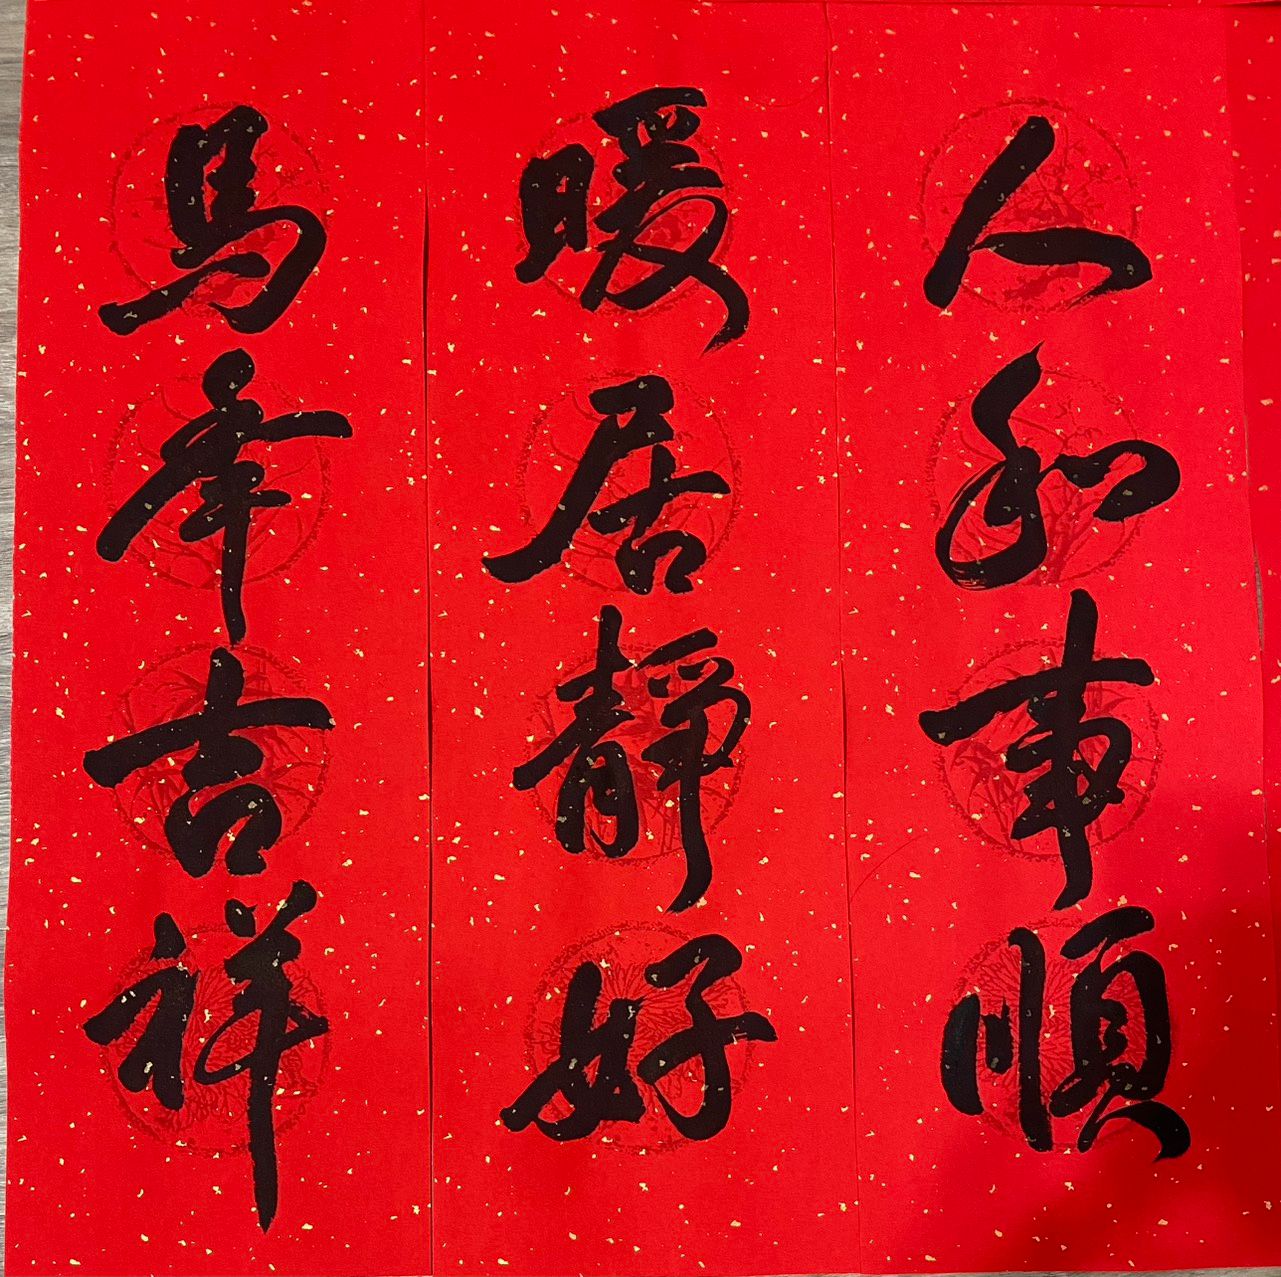 人和事順
暖居靜好
馬年吉祥